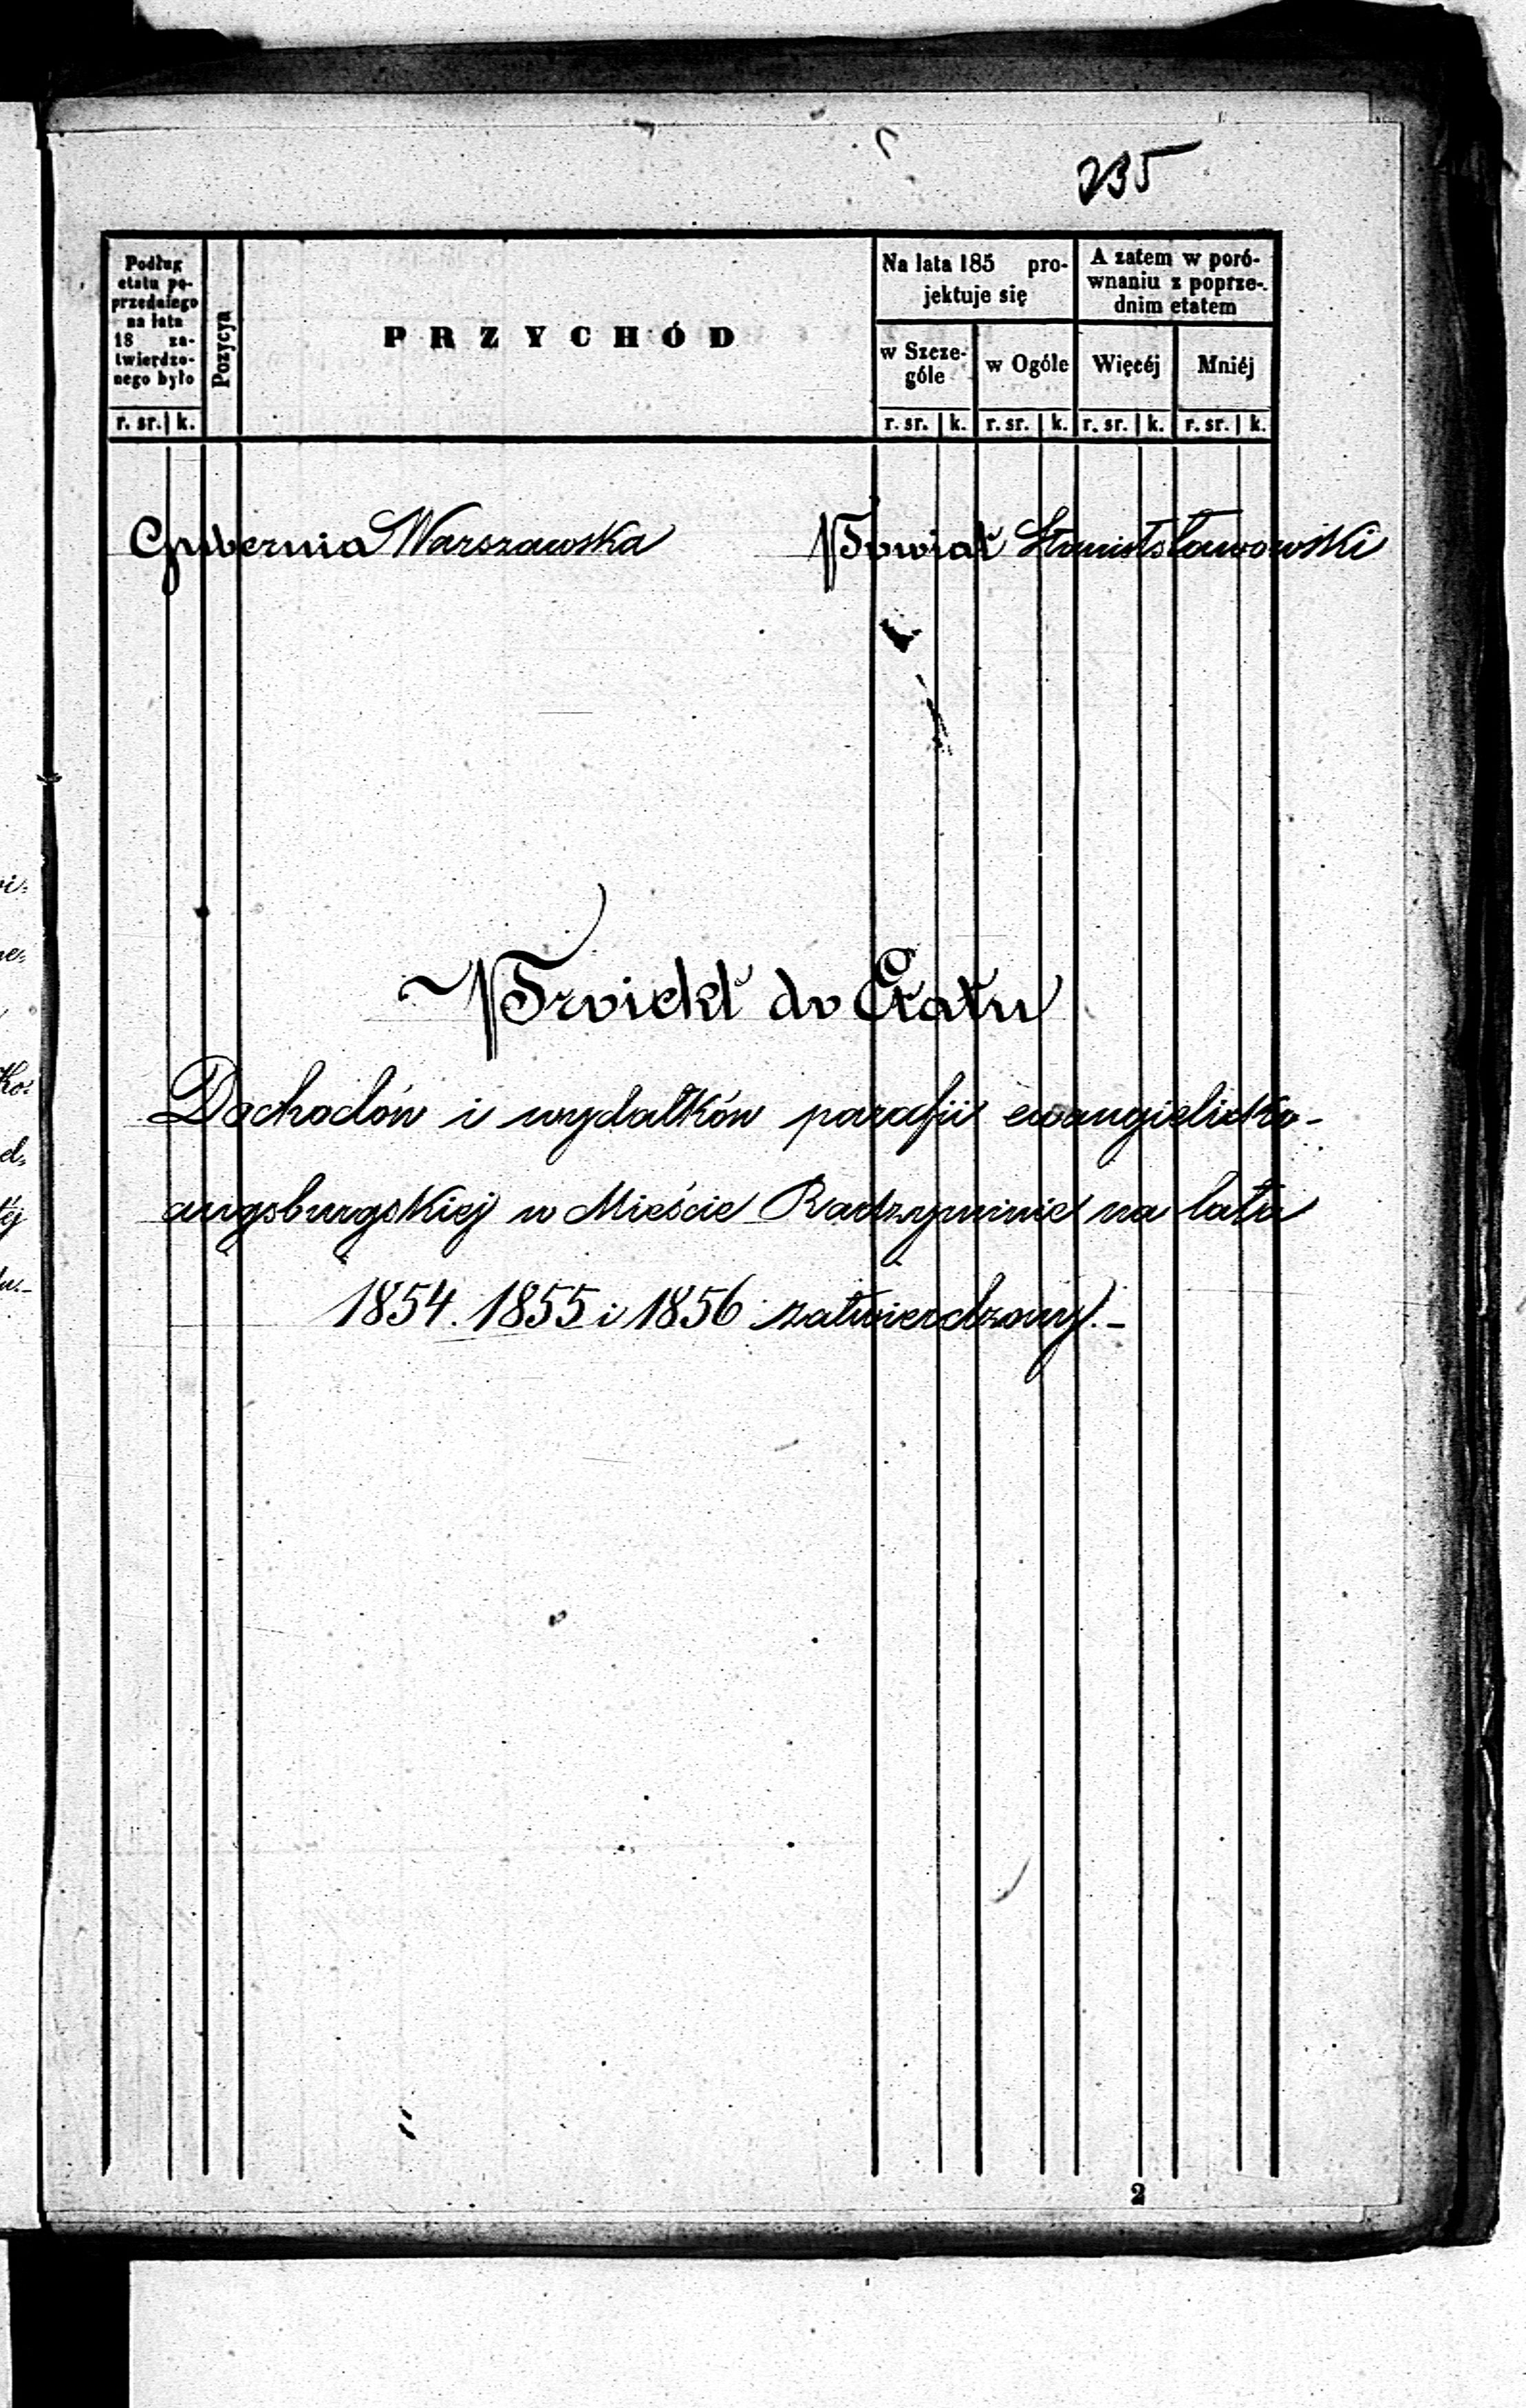 235
Podług
etatu po-
przedniego
na lata
18 za-
twierdzo-
nego było
Pozycya
PRZYCHÓD
Na lata 185 pro-
jektuje się
A zatem w poró-
wnaniu z poprze-
dnim etatem
w Szcze-
góle
w Ogóle
Więcéj
Mniéj
r. sr. k. r. sr. k. r. sr. k. r. sr. k. r. sr. k.
Gubernia Warszawska Powiat Stanisławowski
Proiekt do Etatu
Dochodów i wydatków parafii ewangielicko-
augsburgskiej w Mieście Radzyminie na lata
1854. 1855 i 1856 zatwierdzony.-
2